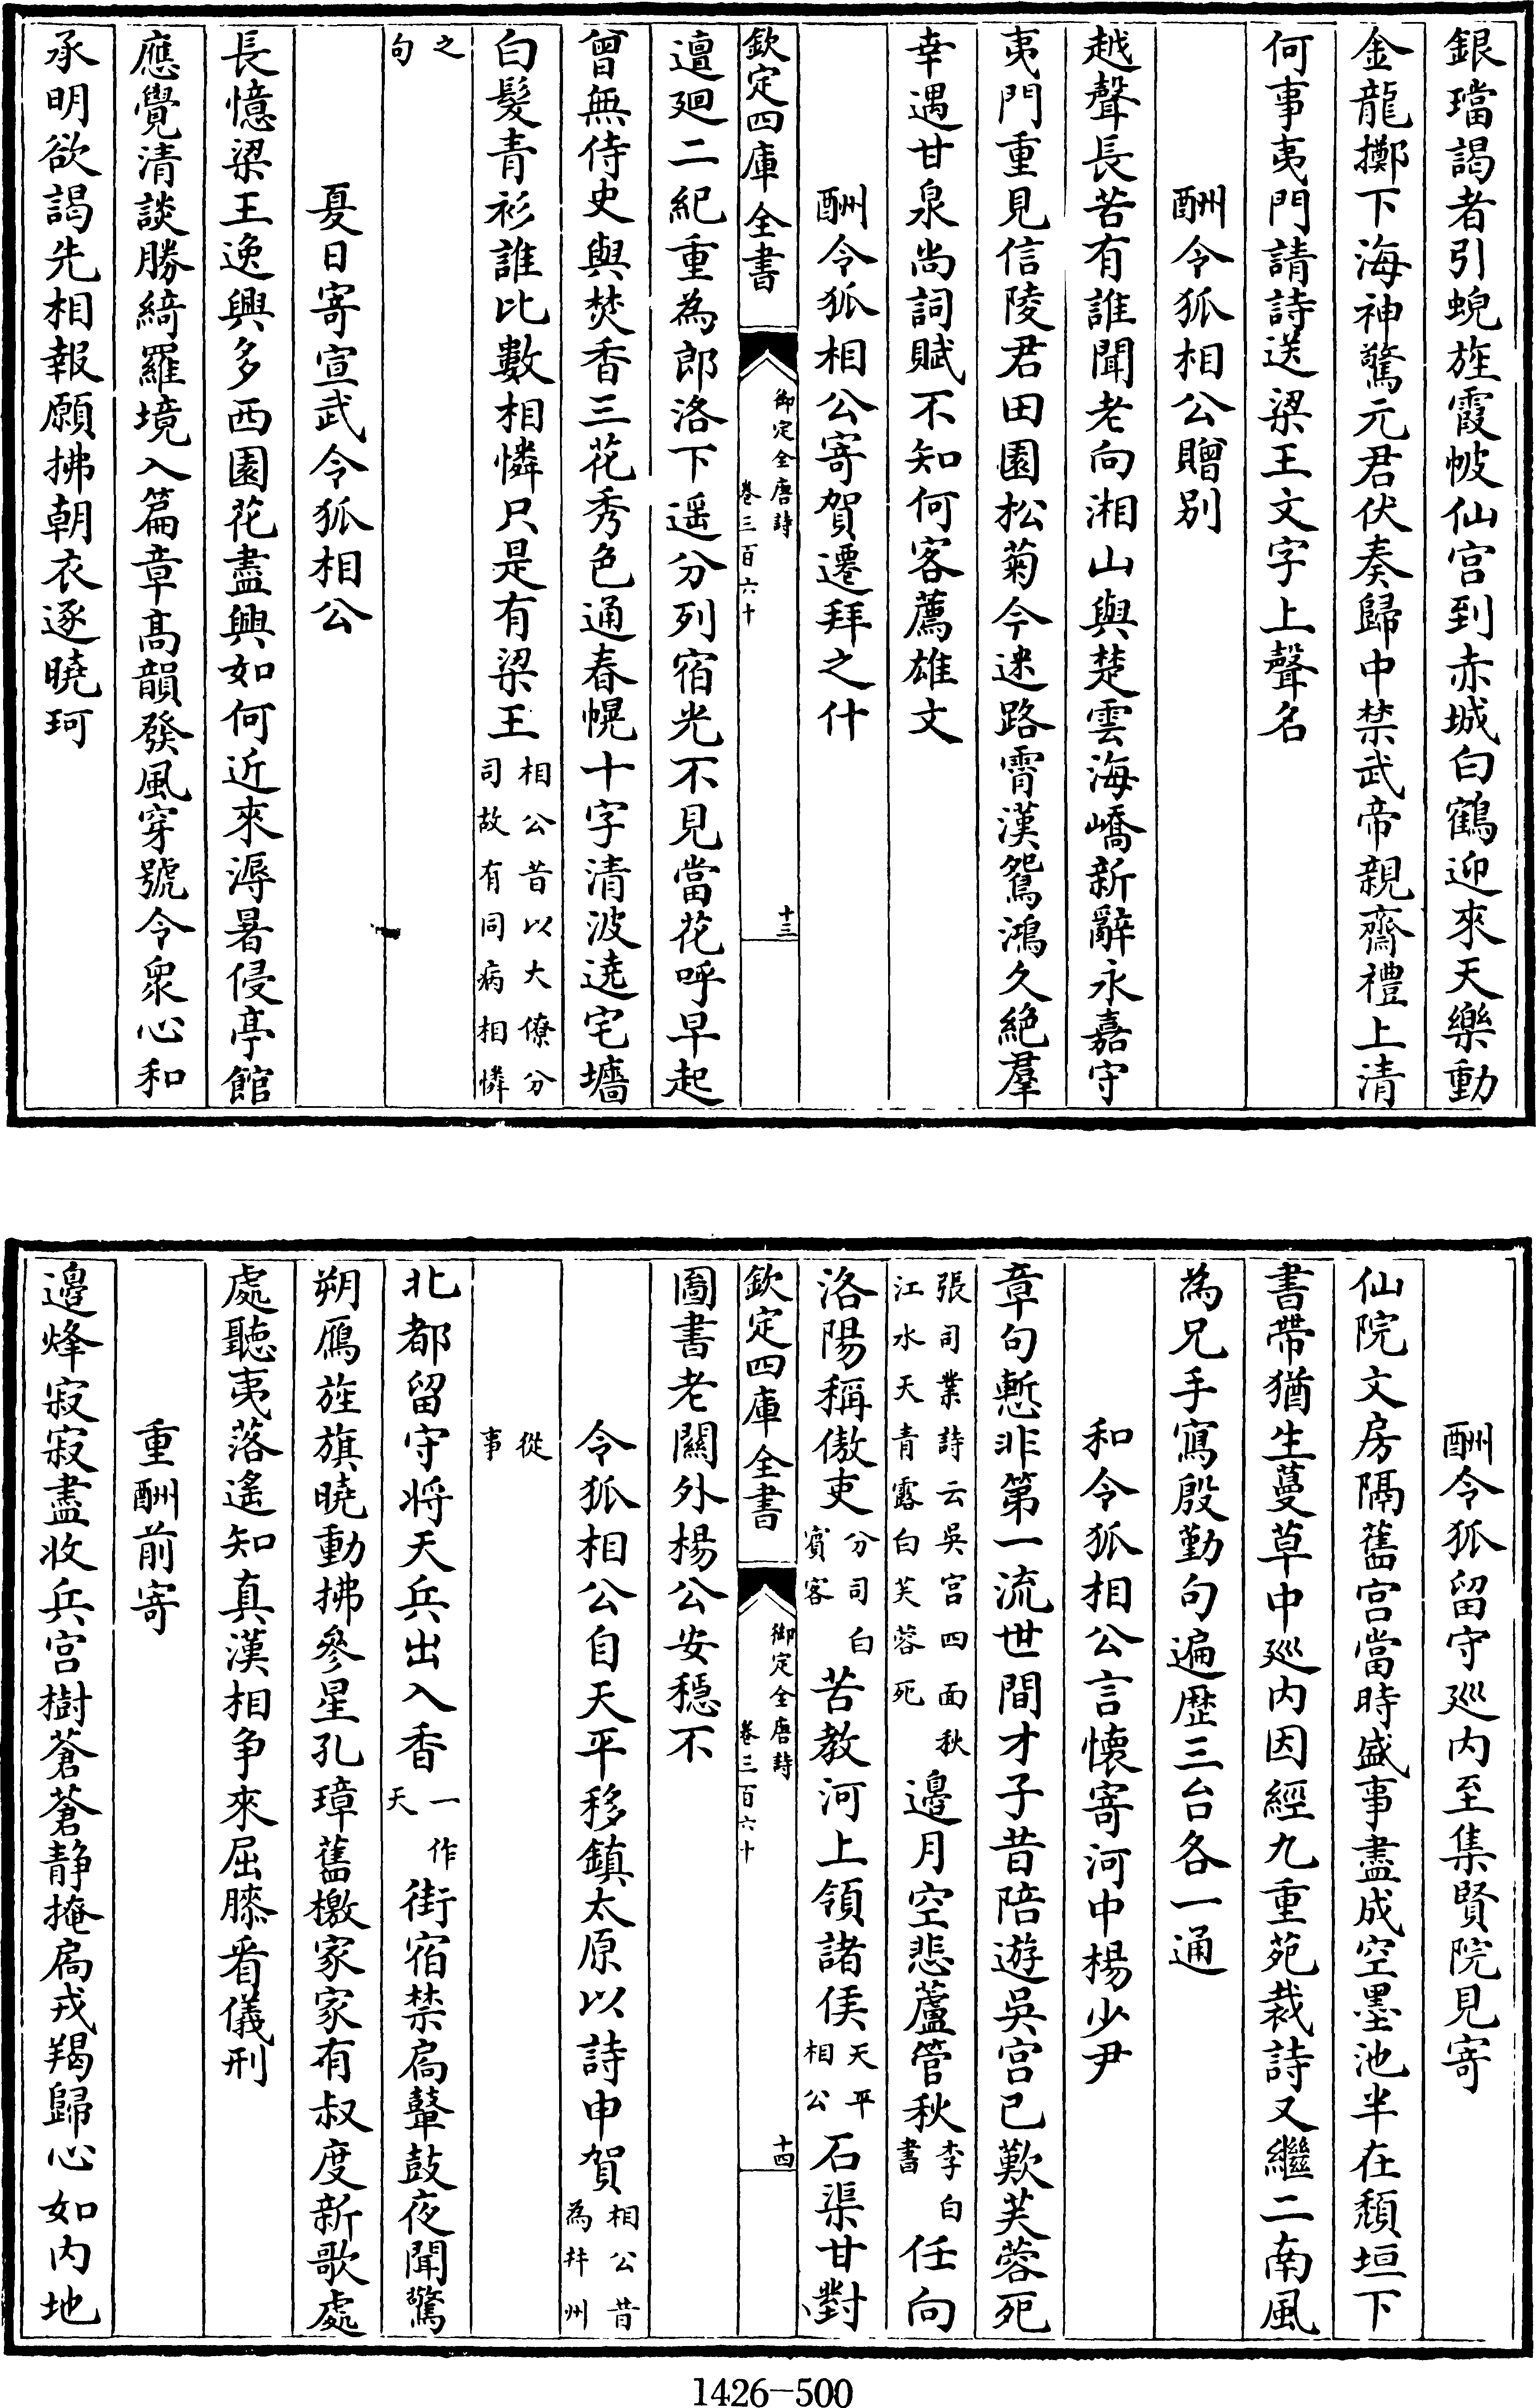 銀璫謁者引蜺旌霞帔仙宫到赤城白鶴迎來天樂動
金龍擲下海神驚元君伏奏歸中禁武帝親齋禮上清
何事夷門請詩送梁王文字上聲名
酬令狐相公贈別
越聲長苦有誰聞老向湘山與楚雲海嶠新辭永嘉守
夷門重見信陵君田園松菊今迷路霄漢鴛鴻久絶羣
幸遇甘泉尚詞賦不知何客薦雄文
酬令狐相公寄賀遷拜之什
欽定四庫全書
御定全唐詩
卷三百六十
十三
邅廻二紀重為郎洛下遥分列宿光不見當花呼早起
曾無侍史與焚香三花秀色通春幌十字清波遶宅墻
白髮青衫誰比數相憐只是有梁王相公昔以大僚分司故有同病相憐
之句
夏日寄宣武令狐相公
長憶梁王逸興多西園花盡興如何近來溽暑侵亭館
應覺清談勝綺羅境入篇章髙韻發風穿號令衆心和
承明欲謁先相報願拂朝衣逐曉珂
酬令狐留守廵内至集賢院見寄
仙院文房隔舊宫當時盛事盡成空墨池半在頹垣下
書帶猶生蔓草中廵内因經九重苑裁詩又繼二南風
為兄手寫殷勤句遍歴三台各一通
和令狐相公言懐寄河中楊少尹
章句慙非第一流世間才子昔陪遊吳宫已歎芙蓉死
張司業詩云吳宫四面秋江水天青露白芙蓉死邉月空悲蘆管秋李白書任向
洛陽稱傲吏分司白賓客苦教河上領諸侯天平相公石渠甘對
欽定四庫全書
御定全唐詩
卷三百六十
十四
圖書老關外楊公安穩不
令狐相公自天平移鎮太原以詩申賀相公昔為并州
從事
北都留守将天兵出入香一作天街宿禁扃鼙鼓夜聞驚
朔鴈旌旗曉動拂參星孔璋舊檄家家有叔度新歌處
處聽夷落遙知真漢相争來屈膝看儀刑
重酬前寄
邉烽寂寂盡收兵宫樹蒼蒼静掩扃戎羯歸心如内地
1426-500